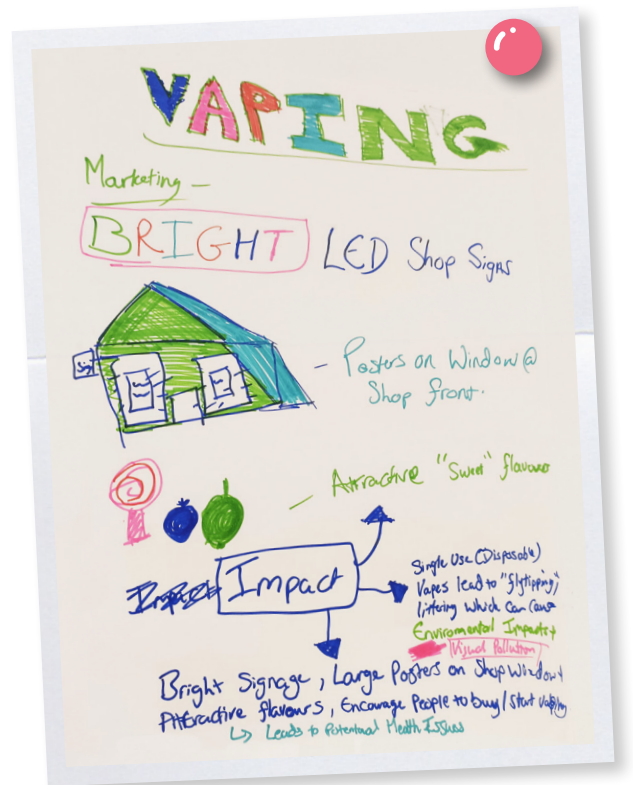 VAPING
Marketing –
BRIGHT LED Shop Signs
Sign
– Posters on Window @
Shop front.
– Attractive "Sweet" flavours
Impact
Single Use (Disposable)
Vapes lead to "flytipping",
littering which can cause
Enviromental Impacts +
Visual Pollution
Bright Signage, Large Posters on Shop Window +
Attractive flavours, Encourage People to buy/start vaping
↳ Leads to Potential Health Issues